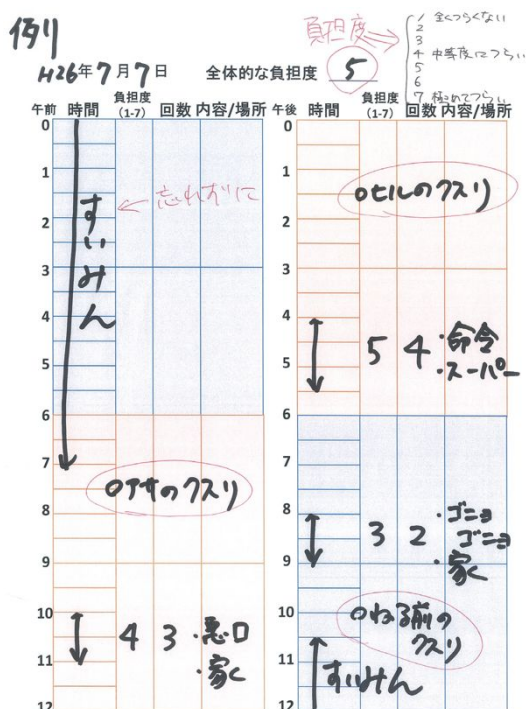 例)
負担度⇒
1 全くつらくない
2
3
4 中等度につらい
5
6
7 極めてつらい
H26年7月7日 全体的な負担度 5
午前 時間 負担度(1-7) 回数 内容/場所
0
1
2
3
4
5
6
7
8
9
10
11
12
すいみん
←忘れずに
○アサのクスリ
4 3 ・悪口
・家
午後 時間 負担度(1-7) 回数 内容/場所
0
1
2
3
4
5
6
7
8
9
10
11
12
○ヒルのクスリ
5 4 ・命令
・スーパー
3 2 ・ゴニョ
ゴニョ
・家
○ねる前の
クスリ
すいみん